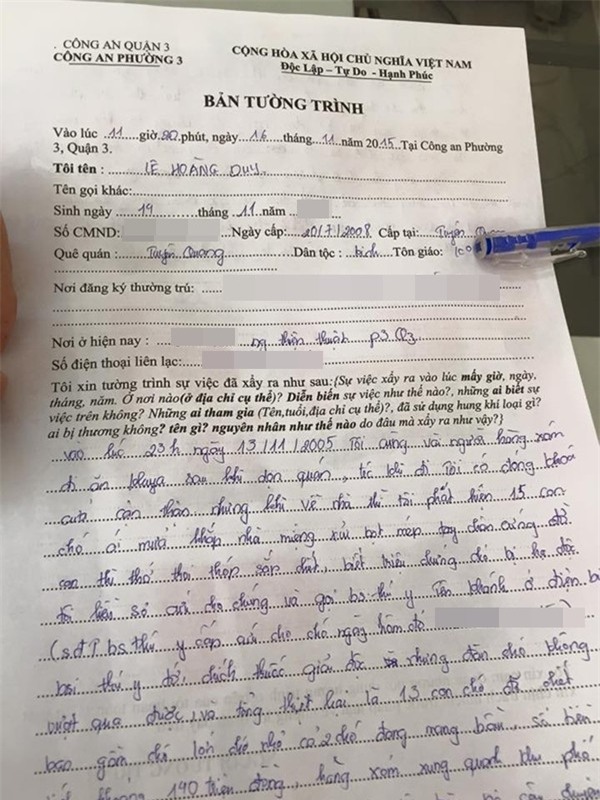 . CÔNG AN QUẬN 3
CÔNG AN PHƯỜNG 3
CỘNG HÒA XÃ HỘI CHỦ NGHĨA VIỆT NAM
Độc Lập – Tự Do - Hạnh Phúc
BẢN TƯỜNG TRÌNH
Vào lúc 11 giờ 20 phút, ngày 16 tháng 11 năm 2015 Tại Công an Phường
3, Quận 3.
Tôi tên : LÊ HOÀNG DUY
Tên gọi khác:
Sinh ngày 19 tháng 11 năm
Số CMND: Ngày cấp: 20/7/2008 Cấp tại: Tuyên
Quê quán : Tuyên Quang Dân tộc : kinh Tôn giáo:
Nơi đăng ký thường trú:
Nơi ở hiện nay : thiện thuật p3 Q3
Số điện thoại liên lạc:
Tôi xin tường trình sự việc đã xẩy ra như sau:{Sự việc xẩy ra vào lúc mấy giờ, ngày,
tháng, năm. Ở nơi nào(ở địa chỉ cụ thể)? Diễn biến sự việc như thế nào?, những ai biết sự
việc trên không? Những ai tham gia (Tên,tuổi,địa chỉ cụ thể)?, đã sử dụng hung khí loại gì?
ai bị thương không? tên gì? nguyên nhân như thế nào do đâu mà xẩy ra như vậy?}
vào lúc 23h ngày 13/11/2005 Tôi cùng vài người hàng xóm
đi ăn khuya sau khi dọn quán, lúc đi Tôi có đóng khoá
cửa cẩn thận nhưng khi về nhà thì tôi phát hiện 15 con
chó ói mửa khắp nhà miệng xùi bọt mép tay chân cứng đờ
con thì thở thoi thóp sắp chết, biết triệu chứng đó bị hạ độc
tôi liền sơ cứu cho chúng và gọi bs thú y Tên khánh ở điện
(sđt bs thú y cấp cứu cho chó ngày hôm đó )
bsi thú y tới, chích thuốc giải độc nhưng đàn chó không
vượt qua được, và tổng thiệt hại là 13 con chó đã chết
bao gồm chó lớn chó nhỏ có 2 chó đang mang bầu, số tiền
khoảng 190 triệu đồng, hàng xóm xung quanh khu phố